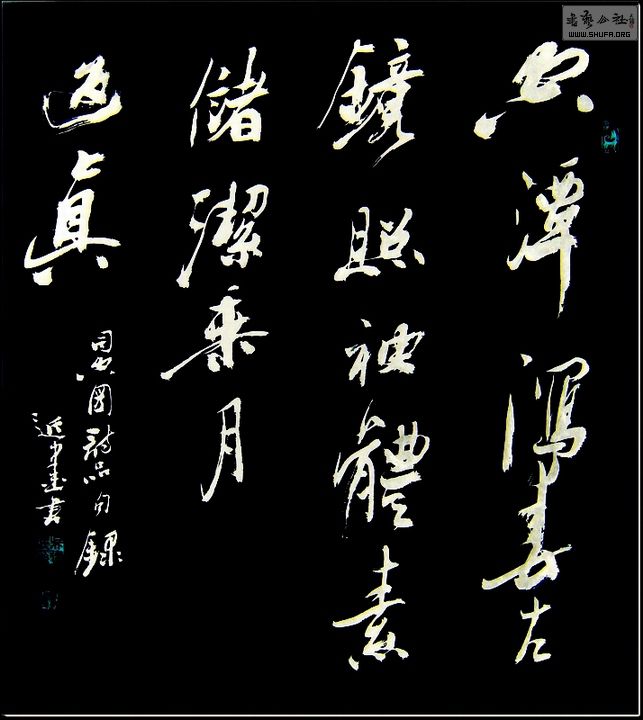 空潭瀉春古
鏡照神體素
儲潔乘月
返真
司空圖詩品句錄
書
書藝公社
WWW.SHUFA.ORG